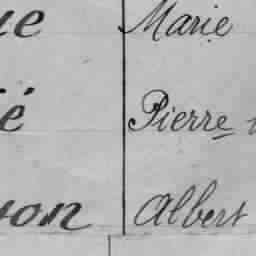 ue Marie
é Pierre
on Albert